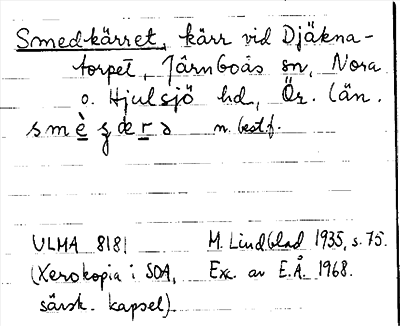 Smedkärret, kärr vid Djäkna-
torpet, Järnboås sn, Nora
o. Hjulsjö hd, Ör. län.
n. best.f.
ULMA 8181 M. Lindblad 1935, s. 75.
(Xerokopia i SOA, Exc. av E.Å. 1968.
särsk. kapsel)